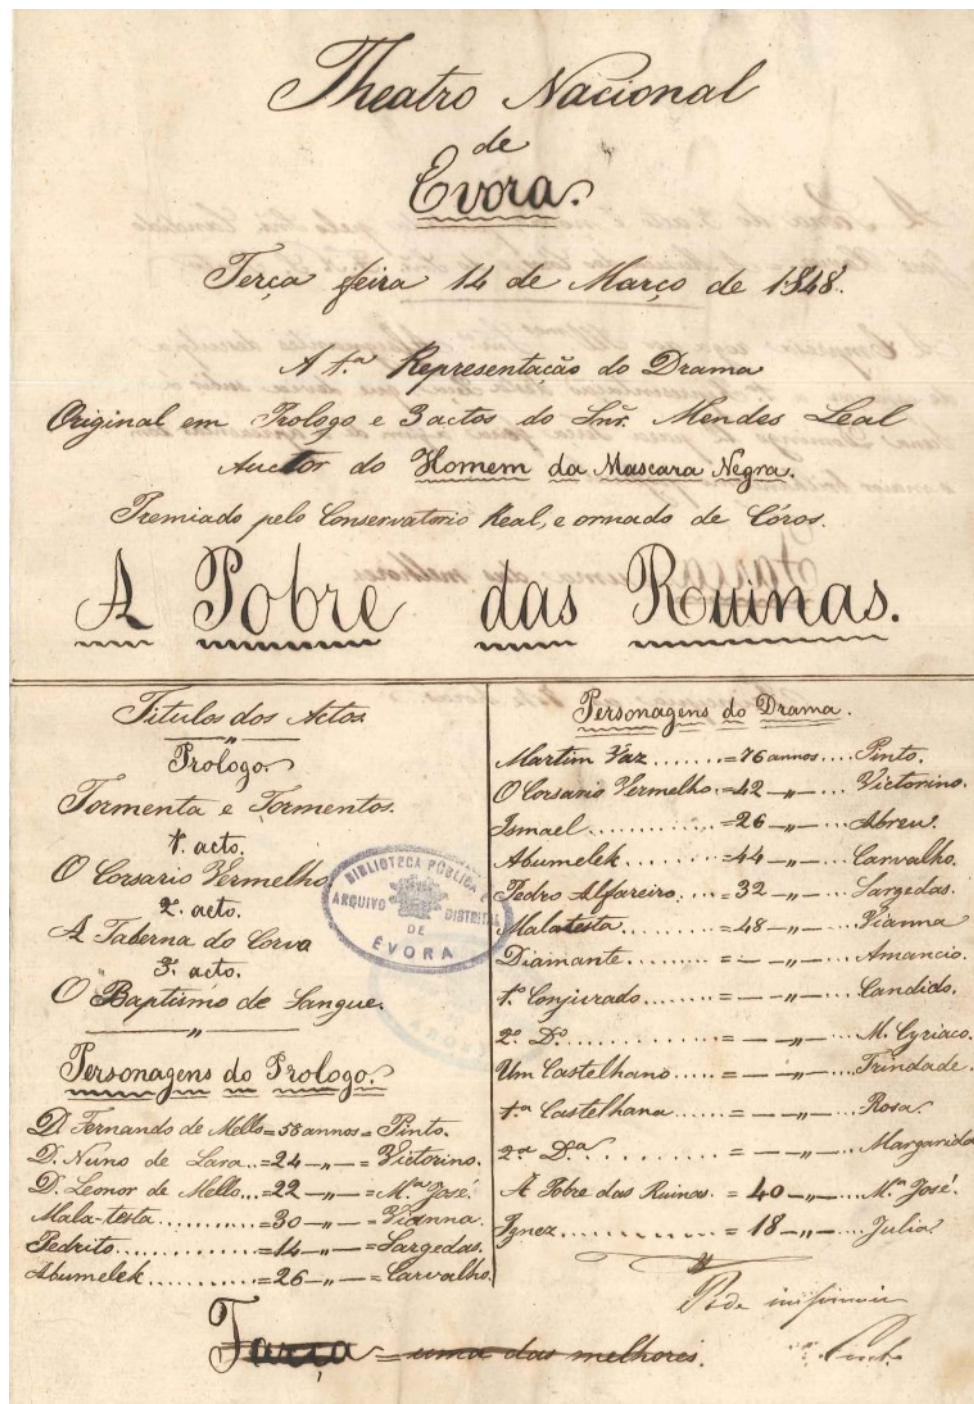 Theatro Nacional
de
Evora.
Terça feira 14 de Março de 1848.
A 1.ª Representação do Drama
Original em Prologo e 3 actos do Snr. Mendes Leal
Auctor do Homem da Mascara Negra.
Premiado pelo Conservatorio Real, e ornado de Córos.
A Pobre das Ruinas.
Titulos dos Actos
Prologo.
Tormenta e Tormentos.
1. acto.
O Corsario Vermelho
2. acto.
A Taberna do Corvo
3. acto.
O Baptismo de Sangue.
Personagens do Prologo.
D. Fernando de Mello = 58 annos = Pinto.
D. Nuno de Lara .. = 24 —„— = Victorino.
D. Leonor de Mello ... = 22 —„— = M.ª José.
Mala-testa .......... = 30 —„— = Vianna.
Pedrito ............. = 14 —„— = Sargedas.
Abumelek ........... = 26 —„— = Carvalho.
Personagens do Drama.
Martim Vaz ....... = 76 annos .... Pinto.
O Corsario Vermelho . = 42 —„— ... Victorino.
Ismael ............ = 26 —„— ... Abreu.
Abumelek ......... = 44 —„— ... Carvalho.
Pedro Alfareiro .... = 32 —„— ... Sargedas.
Malatesta ......... = 48 —„— ... Vianna
Diamante ......... = — —„— ... Amancio.
1.º Conjurado ....... = — —„— ... Candido.
2.º D.º ............. = — —„— ... M. Cyriaco.
Um Castelhano ..... = — —„— ... Trindade.
1.ª Castelhana ...... = — —„— ... Rosa.
2.ª D.ª .......... = — —„— ... Margarida
A Pobre das Ruinas. = 40 —„— ... M.ª José.
Ignez .............. = 18 —„— ... Julia.
BIBLIOTECA PÚBLICA
ARQUIVO DISTRITAL
DE
ÉVORA
Pode
Farça = uma das melhores.
Pinto